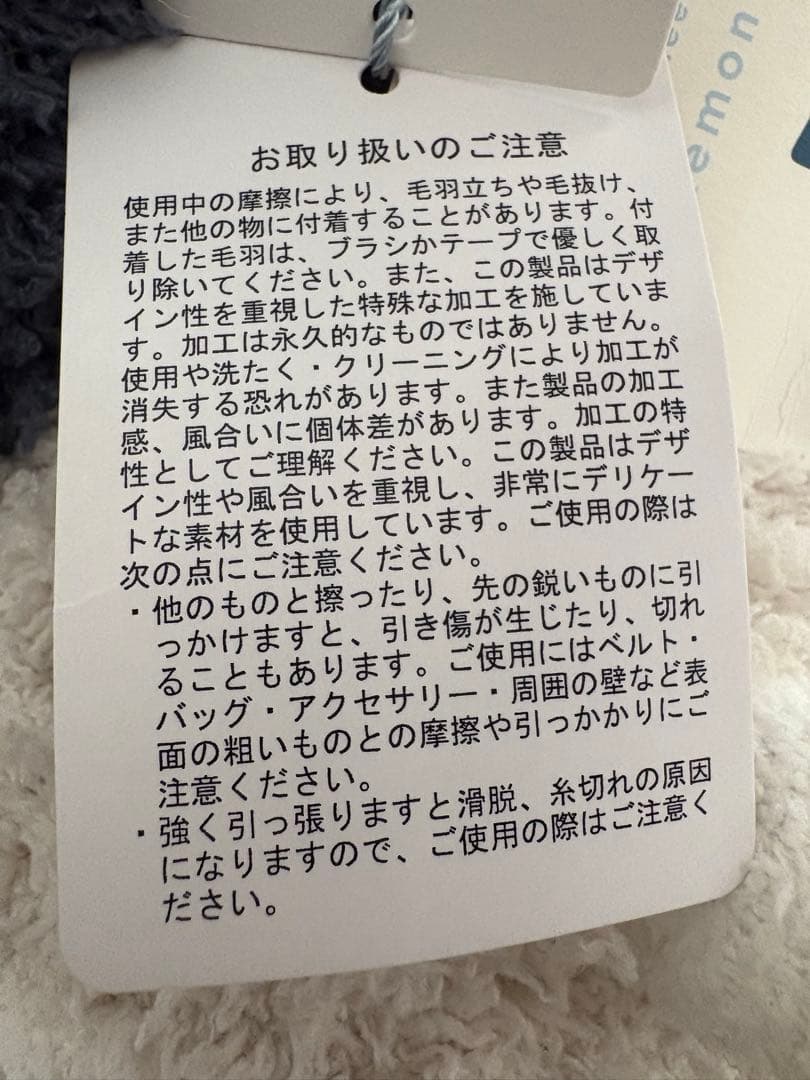 お取り扱いのご注意
使用中の摩擦により、毛羽立ちや毛抜け、
また他の物に付着することがあります。付
着した毛羽は、ブラシかテープで優しく取
り除いてください。また、この製品はデザ
イン性を重視した特殊な加工を施していま
す。加工は永久的なものではありません。
使用や洗たく・クリーニングにより加工が
消失する恐れがあります。また製品の加工
感、風合いに個体差があります。加工の特
性としてご理解ください。この製品はデザ
イン性や風合いを重視し、非常にデリケー
トな素材を使用しています。ご使用の際は
次の点にご注意ください。
・他のものと擦ったり、先の鋭いものに引
っかけますと、引き傷が生じたり、切れ
ることもあります。ご使用にはベルト・
バッグ・アクセサリー・周囲の壁など表
面の粗いものとの摩擦や引っかかりにご
注意ください。
・強く引っ張りますと滑脱、糸切れの原因
になりますので、ご使用の際はご注意く
ださい。
emon